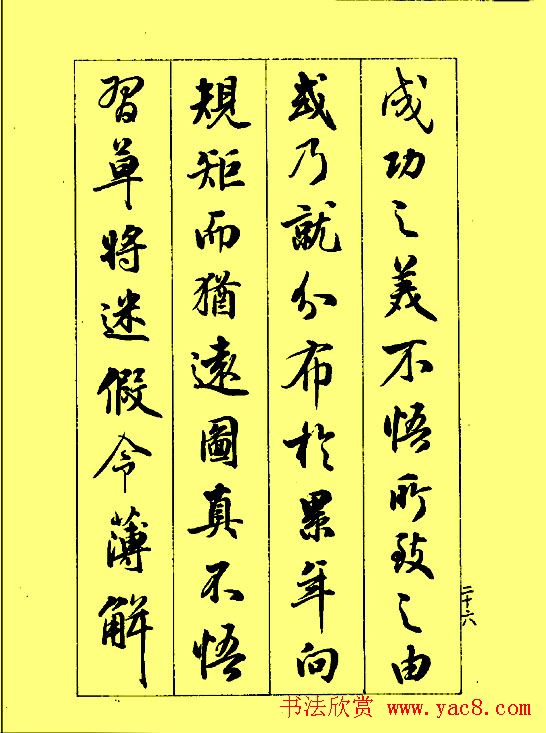 成功之美不悟所致之由
或乃就分布於累年向
規矩而猶遠圖真不悟
習草將迷假令薄解
二十六
书法欣赏 www.yac8.com